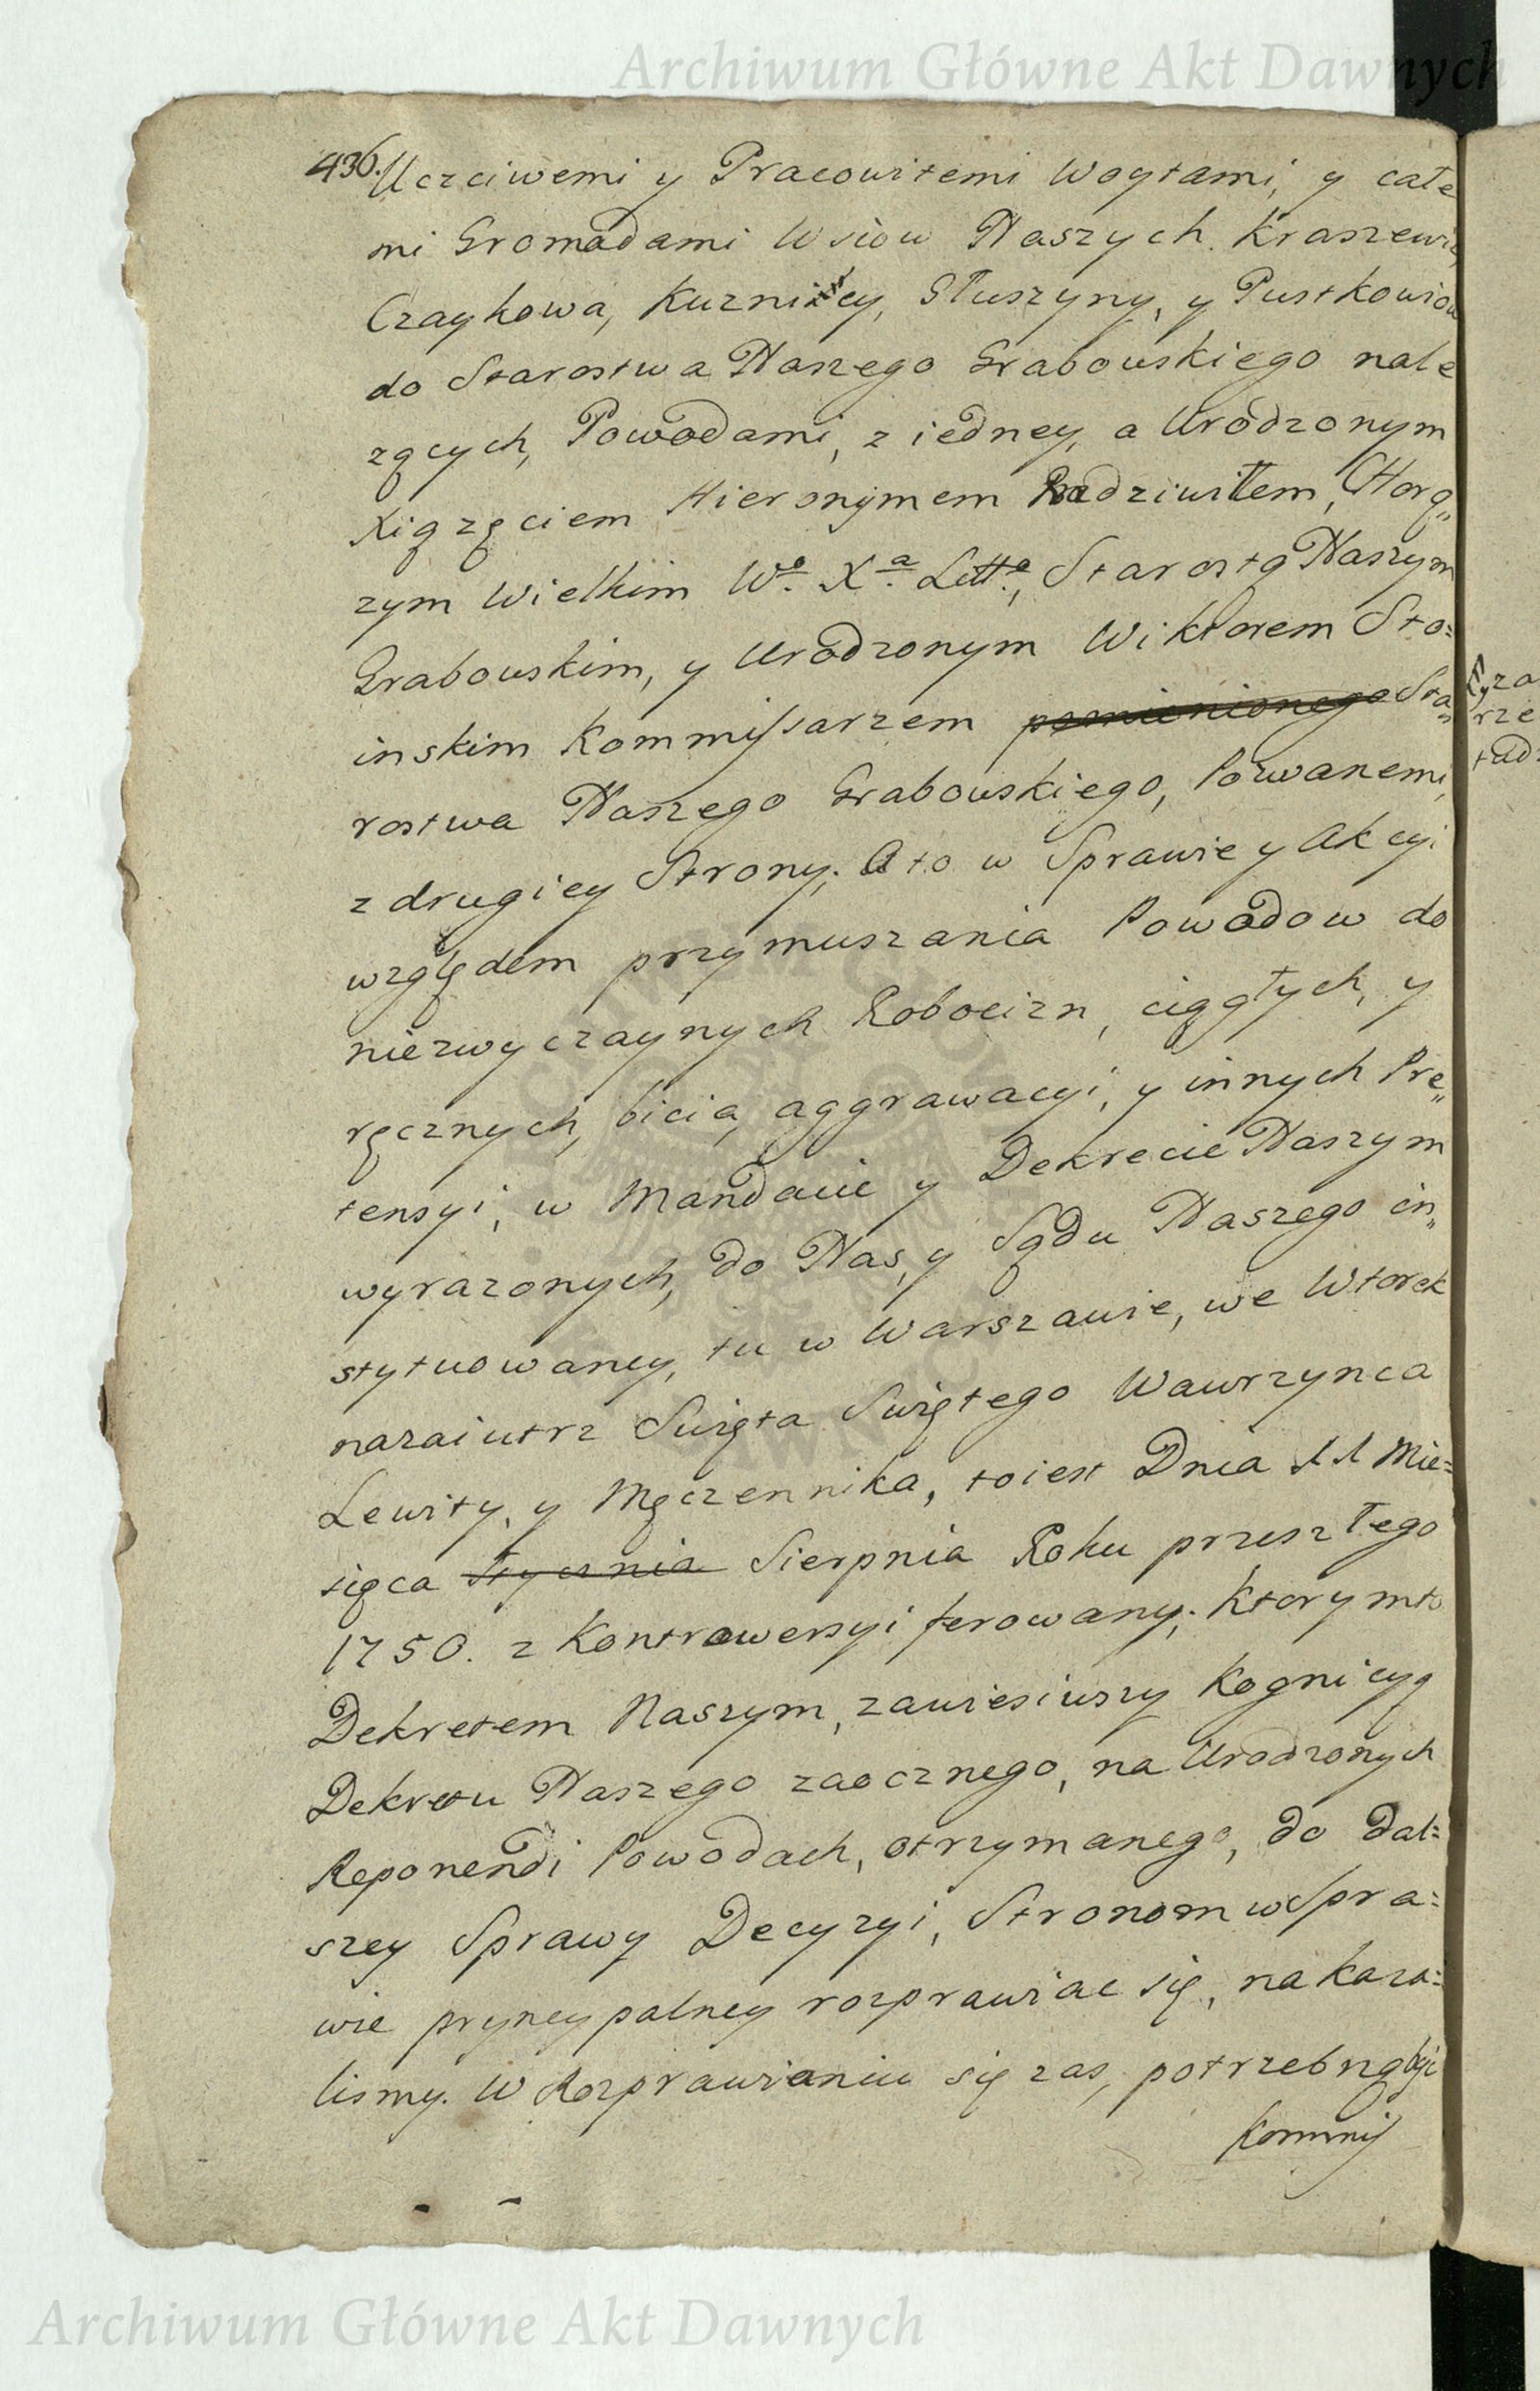 Archiwum Główne Akt Dawnych
436. Uczciwemi y Pracowitemi Woytami, y całe
mi Gromadami Wsiow Naszych Kraszewic,
Czaykowa, Kuznicy, Głuszyny, y Pustkowiow
do Starostwa Naszego Grabowskiego nale
zących, Powodami, z iedney, a Urodzonym
Xiązęciem Hieronymem Radziwiłem, Chorą„
zym Wielkim Wo. Xa. Litto., Starostą Naszym
Grabowskim, y Urodzonym Wiktorem Sto=
inskim Kommissarzem pomienionego Sta„
rostwa Naszego Grabowskiego, Pozwanemi,
z drugiey Strony. A to w Sprawie y Akcyi
względem przymuszania Powodow do
niezwyczaynych Robocizn, ciągłych, y
ręcznych, bicia, aggrawacyi, y innych Pre„
tensyi, w Mandacie y Dekrecie Naszym
wyrazonych, do Nas, y Sądu Naszego in„
stytuowaney, tu w Warszawie, we Wtorek
nazaiutrz Swięta Swiętego Wawrzynca
Lewity, y Męczennika, toiest Dnia 11 Mie=
siąca Stycznia Sierpnia Roku przeszłego
1750. z Kontrowersyi ferowany; Ktorymto
Dekretem Naszym, zawiesiwszy Kognicyą
Dekretu Naszego zaocznego, na Urodzonych
Reponendi Powodach, otrzymanego, do dal=
szey Sprawy Decyzyi, Stronom w Spra=
wie pryncypalney rozprawiac się, nakaza=
lismy. W Rozprawieniu się zas, potrzebną byc
Kommis
Archiwum Główne Akt Dawnych